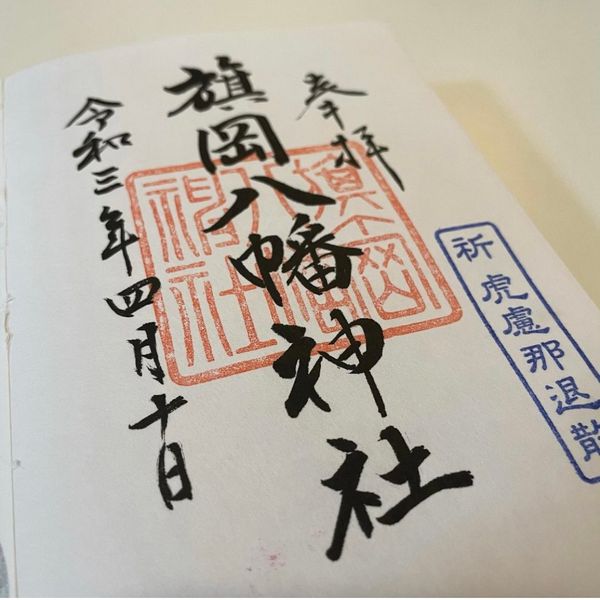 奉拝
旗岡八幡神社
令和三年四月十日
旗岡八幡神社
祈 虎慮那退散